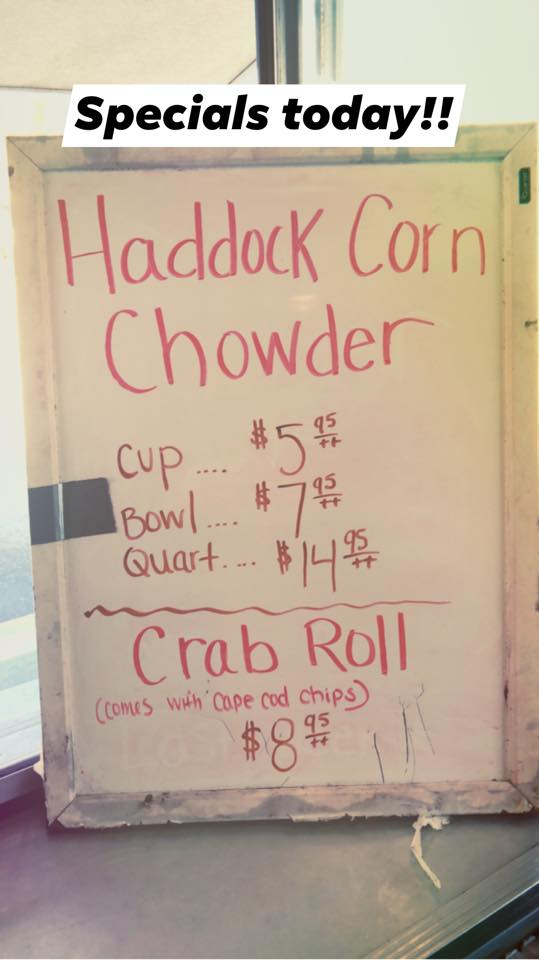 Specials today!!
Haddock Corn
Chowder
Cup .... $5 95/++
Bowl .... $7 95/++
Quart.... $14 95/++
Crab Roll
(comes with Cape Cod chips)
$8 95/++